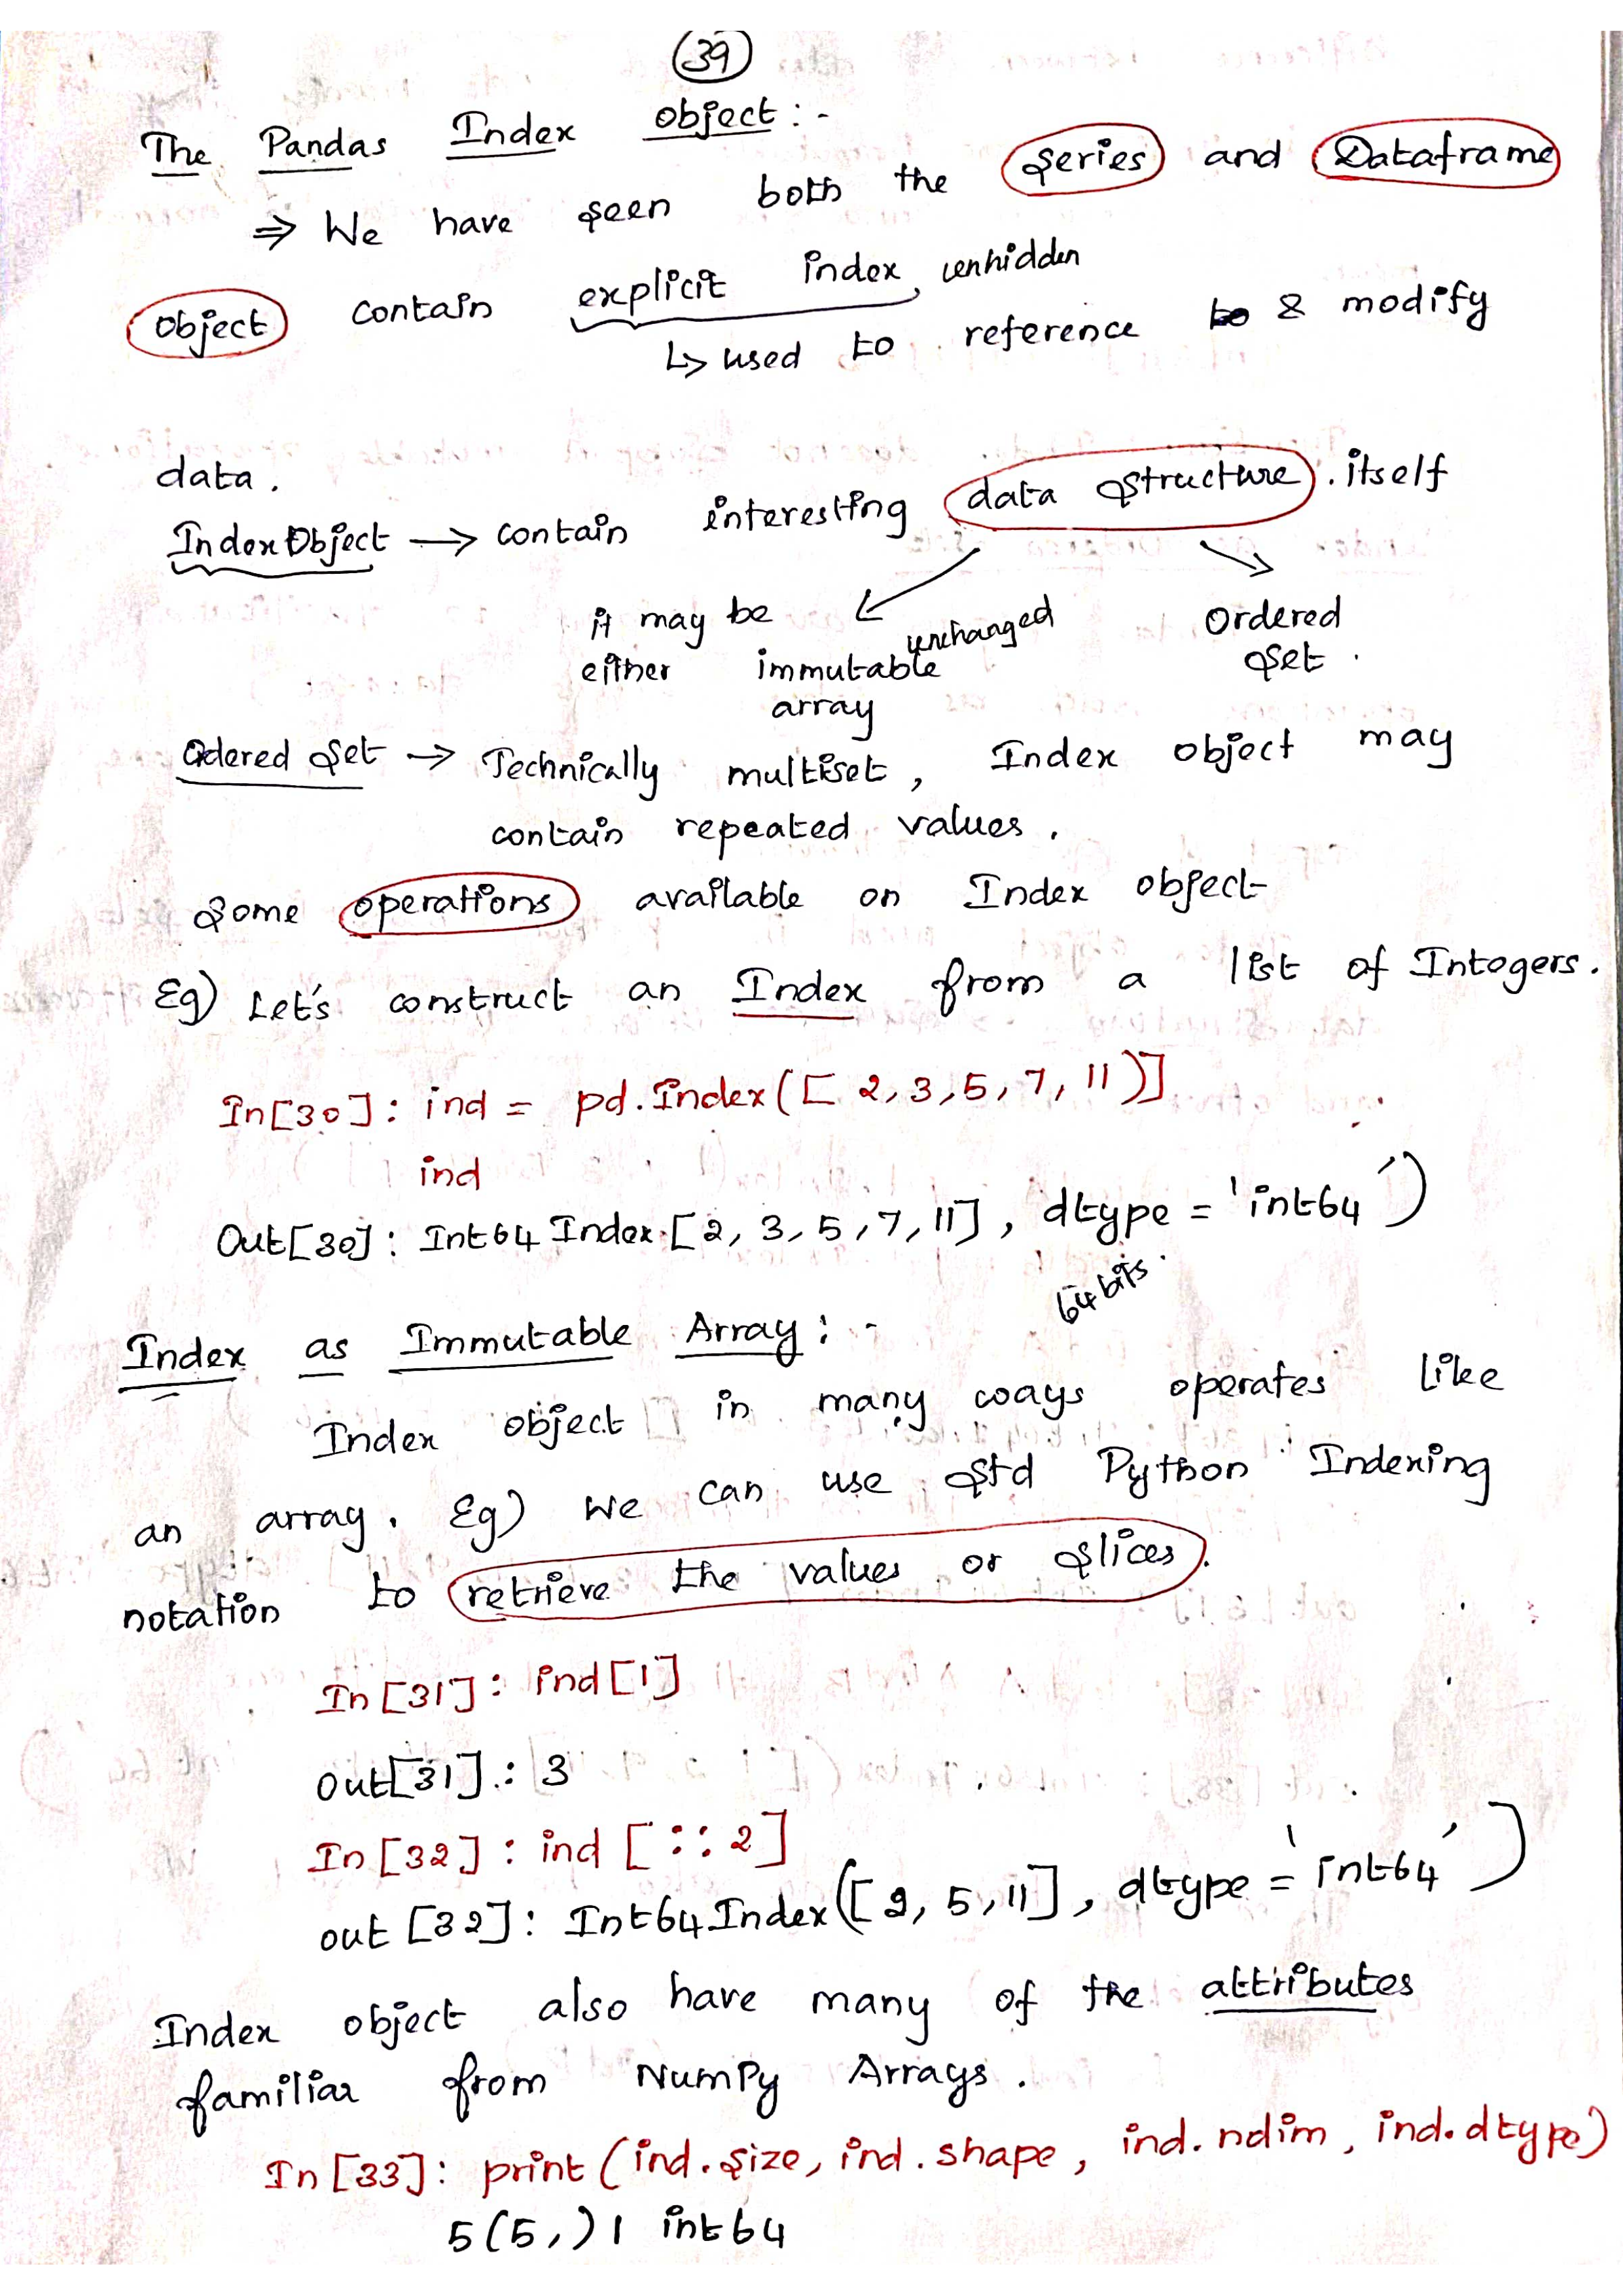 39
The Pandas Index object :-
⇒ We have seen both the Series and Dataframe
object contain explicit index, unhidden
↳ used to reference & modify
data.
Index Object → contain interesting data structure. itself
it may be either
immutable array
unchanged
Ordered Set.
Odered Set → Technically multiset, Index object may
contain repeated values.
Some operations available on Index object
Eg) Let's construct an Index from a list of Integers.
In[30]: ind = pd.Index([ 2, 3, 5, 7, 11 )]
ind
Out[30]: Int64 Index [2, 3, 5, 7, 11], dtype = 'int64')
64 bits.
Index as Immutable Array: -
Index object in many ways operates like
an array. Eg) We can use Std Python Indexing
notation to retrieve the values or slices.
In [31]: ind [1]
out[31]: 3
In [32]: ind [::2]
out [32]: Int64Index([2, 5, 11], dtype = 'int64')
Index object also have many of the attributes
familiar from NumPy Arrays.
In [33]: print (ind.size, ind.shape, ind.ndim, ind.dtype)
5 (5,) 1 int64